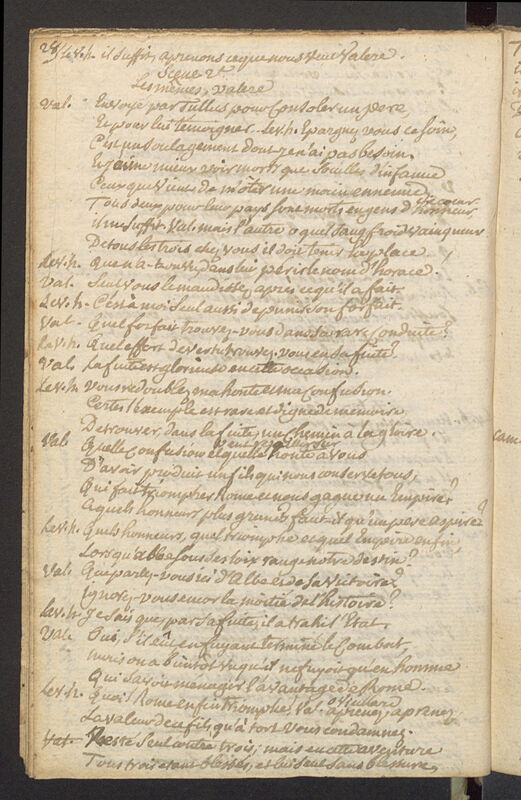 28/ Le v.h. il suffit, aprenons ce que nous veut Valere.
Scene 2e
Les mêmes, valere
Val. Envoyé par Tullus pour Consoler un pere,
Et pour lui témoigner. Le v.h. Epargnez vous ce soin,
C'est un soulagement dont je n'ai pas besoin.
Et j'aime mieux voir morts que souillés d'infamie
Ceux que vient de m'ôter une main ennemie.
Tous deux pour leur pays sont morts en gens d'honneur,
il me suffit. Val. mais l'autre
De tous les trois chez vous il doit tenir la place.
Le v.h. Que n'a-t-on vu dans lui perir le nom d'horace.
Val. Seul vous le maudissez après ce qu'il a fait.
Le v.h. C'est à moi seul aussi de punir son forfait.
Val. Quel forfait trouvez-vous dans sa rare Conduite?
Le v.h. Quel effort de vertu trouvez-vous en sa fuite?
Val. La fuite est glorieuse en cette occasion.
Le v.h. Vous redoublez ma honte et ma confusion.
Certes l'exemple est rare et digne de mémoire
De trouver dans la fuite un Chemin à la gloire.
Val. Quelle confusion et quelle honte à vous
D'avoir produit un fils qui nous conserve tous,
Qui fait triompher Rome et nous gagne un Empire?
A quels honneurs plus grands faut-il qu'un pere aspire?
Le v.h. Quels honneurs, quel triomphe et quel Empire enfin
Lorsqu'albe sous ses loix range notre destin?
Val. Que parlez-vous ici d'Albe et de sa victoire?
Ignorez-vous encor la moitié de l'histoire?
Le v.h. Je sais que, par sa fuite, il a trahi l'Etat.
Val. Oui, s'il eût en fuyant terminé le Combat,
mais on a bientôt vu qu'il ne fuyoit qu'en homme
Qui savoit ménager l'avantage de Rome.
Le v.h. Quoi! Rome enfin triomphe. Val. aprenez, aprenez
La valeur de ce fils qu'à tort vous condamnez.
Resté seul contre trois, mais en cette aventure
Tous trois étant blessés, et lui seul sans blessure,